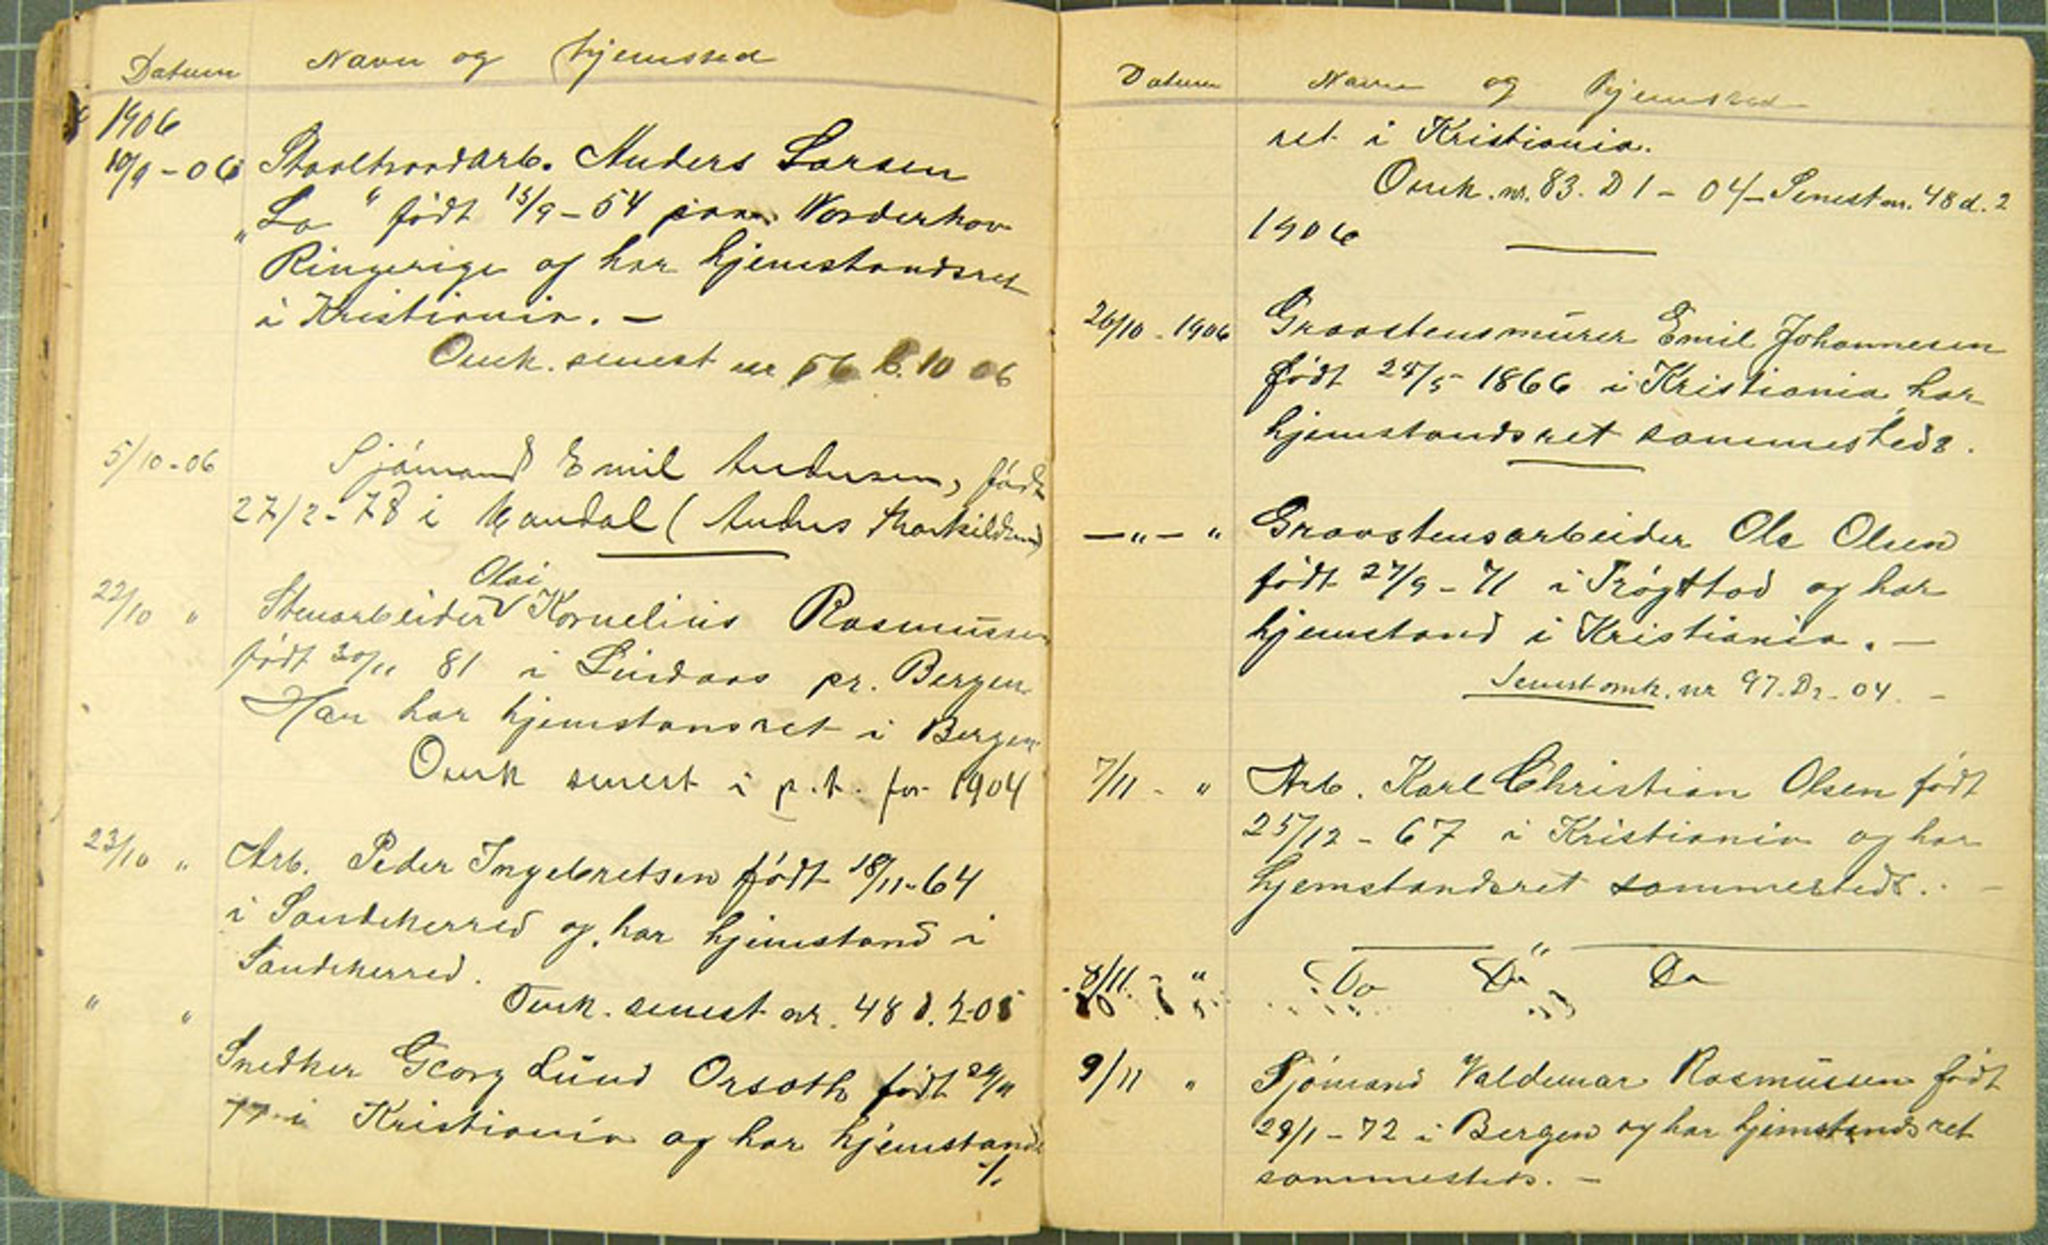 Datum Navn og hjemsted
1906
10/9 - 06 Staaltraadarb. Anders Larsen
"La" født 15/9 - 54 paa Norderhov
Ringerige og har hjemstandsret
i Kristiania. —
Omk. senest nr 56 10 06
5/10 - 06 Sjómand Emil Andersen, født
27/2 - 78 i Mandal (Anders Thorkildsen)
22/10 " Stenarbeider Olai Kornelius Rasmussen
født 20/11 81 i Lindaas pr. Bergen
Han har hjemstansret i Bergen
Omk senest i p.t. for 1904
23/10 " Arb. Peder Ingebretsen født 18/11 - 64
i Sandeherred og har hjemstand i
Sandeherred.
Omk. senest nr. 48 d. 2 - 05
" " Snedker Georg Lund Orsoth født 29/11
77 i Kristiania og har hjemstands
./.
Datum Navn og hjemsted
ret i Kristiania.
Omk. nr. 83. D 1 - 04 - Senest nr. 48 d. 2
1906
26/10 - 1906 Graastensmurer Emil Johannesen
født 25/5 - 1866 i Kristiania, har
hjemstandsret sammesteds.
— " — " Graastensarbeider Ole Olsen
født 27/9 - 71 i Trógstad og har
hjemstand i Kristiania. —
Senest omk. nr 97. D2 - 04. -
7/11 - " Arb. Karl Christian Olsen født
25/12 - 67 i Kristiania og har
hjemstandsret sammesteds. -
8/11 - " Do Do " Do
9/11 " Sjómand Valdemar Rasmussen født
29/1 - 72 i Bergen og har hjemstandsret
sammesteds. —